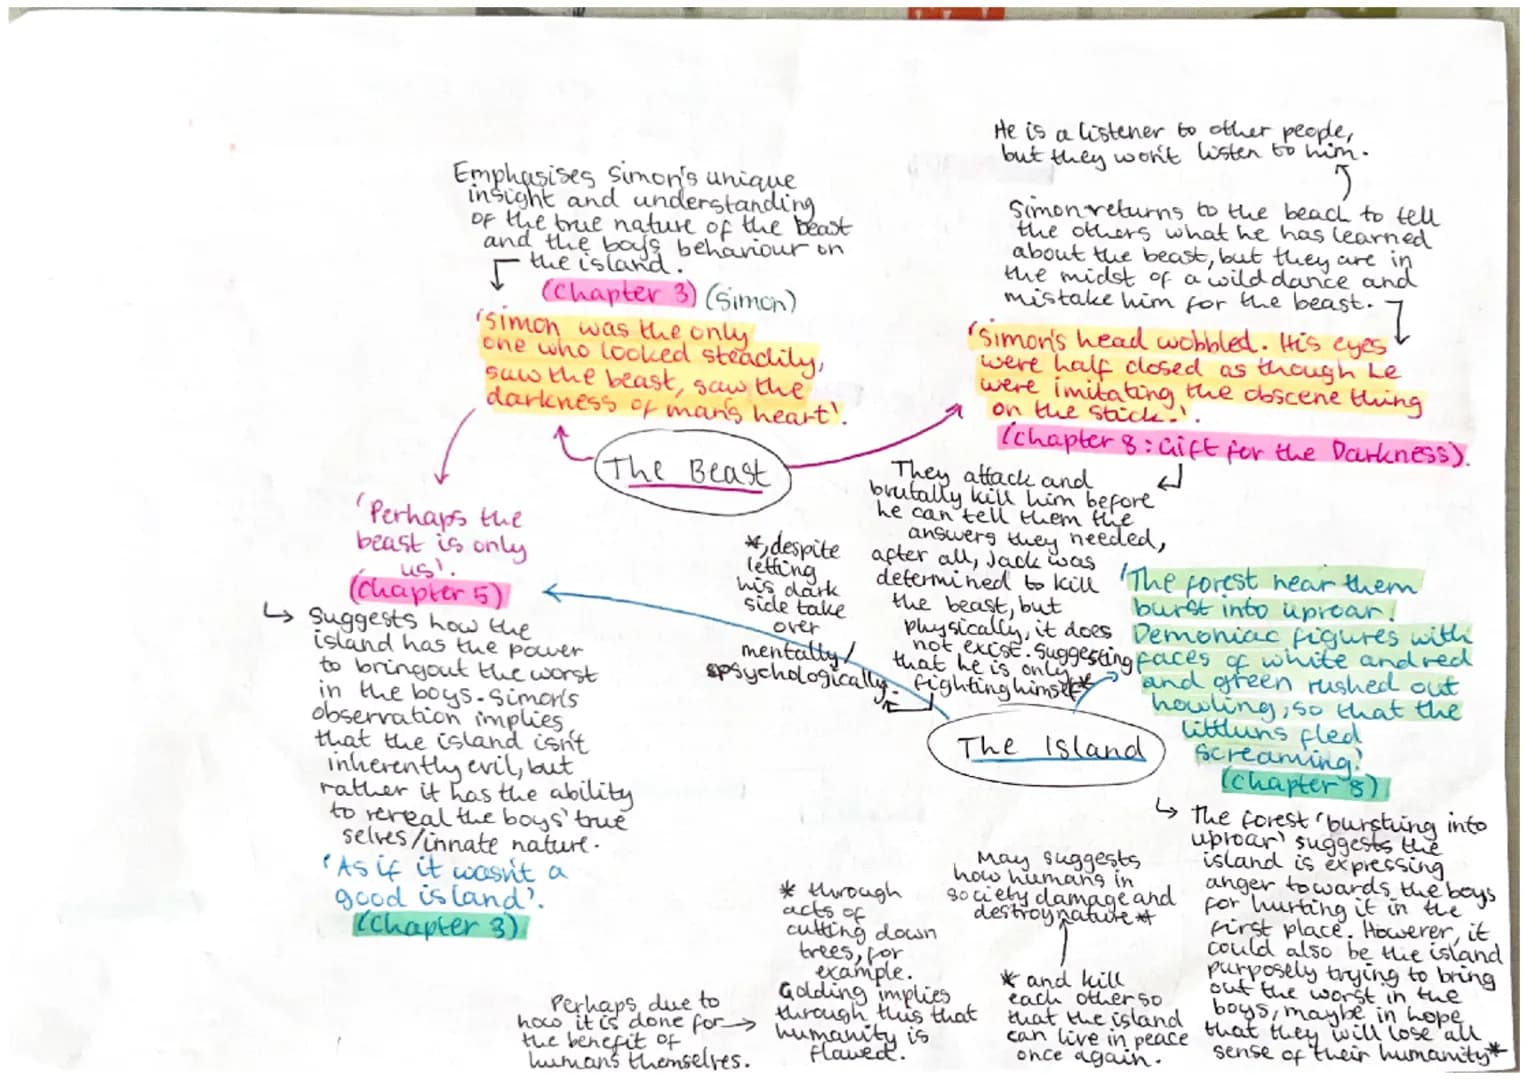 Emphasises Simon's unique
insight and understanding
of the true nature of the beast
and the boys behaviour on
the island.
(Chapter 3) (Simon)
'Simon was the only
one who looked steadily,
saw the beast, saw the
darkness of man's heart'.
The Beast
'Perhaps the
beast is only
us'.
(Chapter 5)
Suggests how the
island has the power
to bringout the worst
in the boys. Simon's
observation implies
that the island isn't
inherently evil, but
rather it has the ability
to reveal the boys' true
selves/innate nature.
'As if it wasn't a
good island'.
(Chapter 3)
He is a listener to other people,
but they won't listen to him.
Simon returns to the beach to tell
the others what he has learned
about the beast, but they are in
the midst of a wild dance and
mistake him for the beast.
'Simon's head wobbled. His eyes
were half closed as though he
were imitating the obscene thing
on the stick.'.
(Chapter 8: Gift for the Darkness).
They attack and
brutally kill him before
he can tell them the
answers they needed,
after all, Jack was
determined to kill
the beast, but
physically, it does
not exist. Suggesting
that he is only
fighting himself*
*, despite
letting
his dark
side take
over
mentally/
psychologically.
The Island
'The forest near them
burst into uproar.
Demoniac figures with
faces of white and red
and green rushed out
howling, so that the
littluns fled
screaming.'
(Chapter 8)
The forest 'bursting into
uproar' suggests the
island is expressing
anger towards the boys
for hurting it in the
first place. However, it
could also be the island
purposely trying to bring
out the worst in the
boys, maybe in hope
that they will lose all
sense of their humanity*
* and kill
each other so
that the island
can live in peace
once again.
May suggests
how humans in
society damage and
destroy nature *
* through
acts of
cutting down
trees, for
example.
Golding implies
through this that
humanity is
flawed.
Perhaps due to
how it is done for
the benefit of
humans themselves.